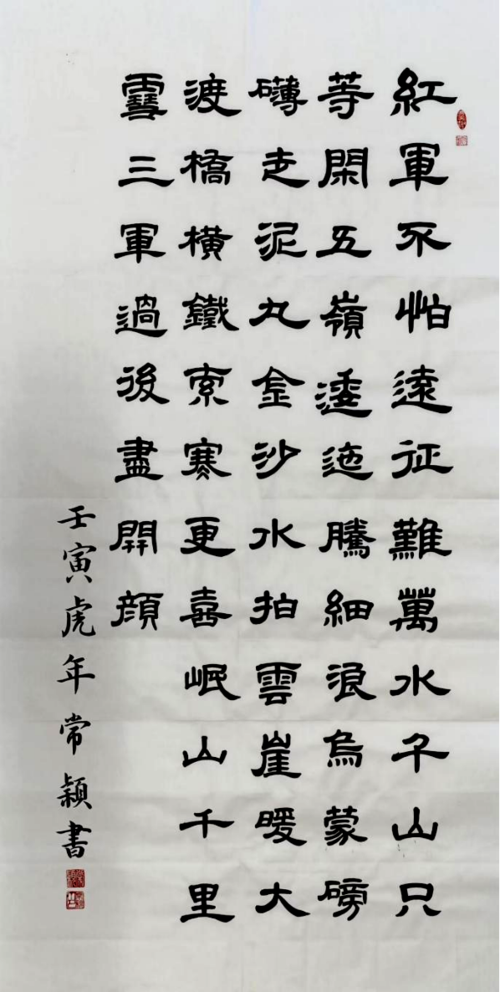 紅軍不怕遠征難萬水千山只
等閑五嶺逶迤騰細浪烏蒙磅
礴走泥丸金沙水拍雲崖暖大
渡橋橫鐵索寒更喜岷山千里
雪三軍過後盡開顏
壬寅虎年常穎書